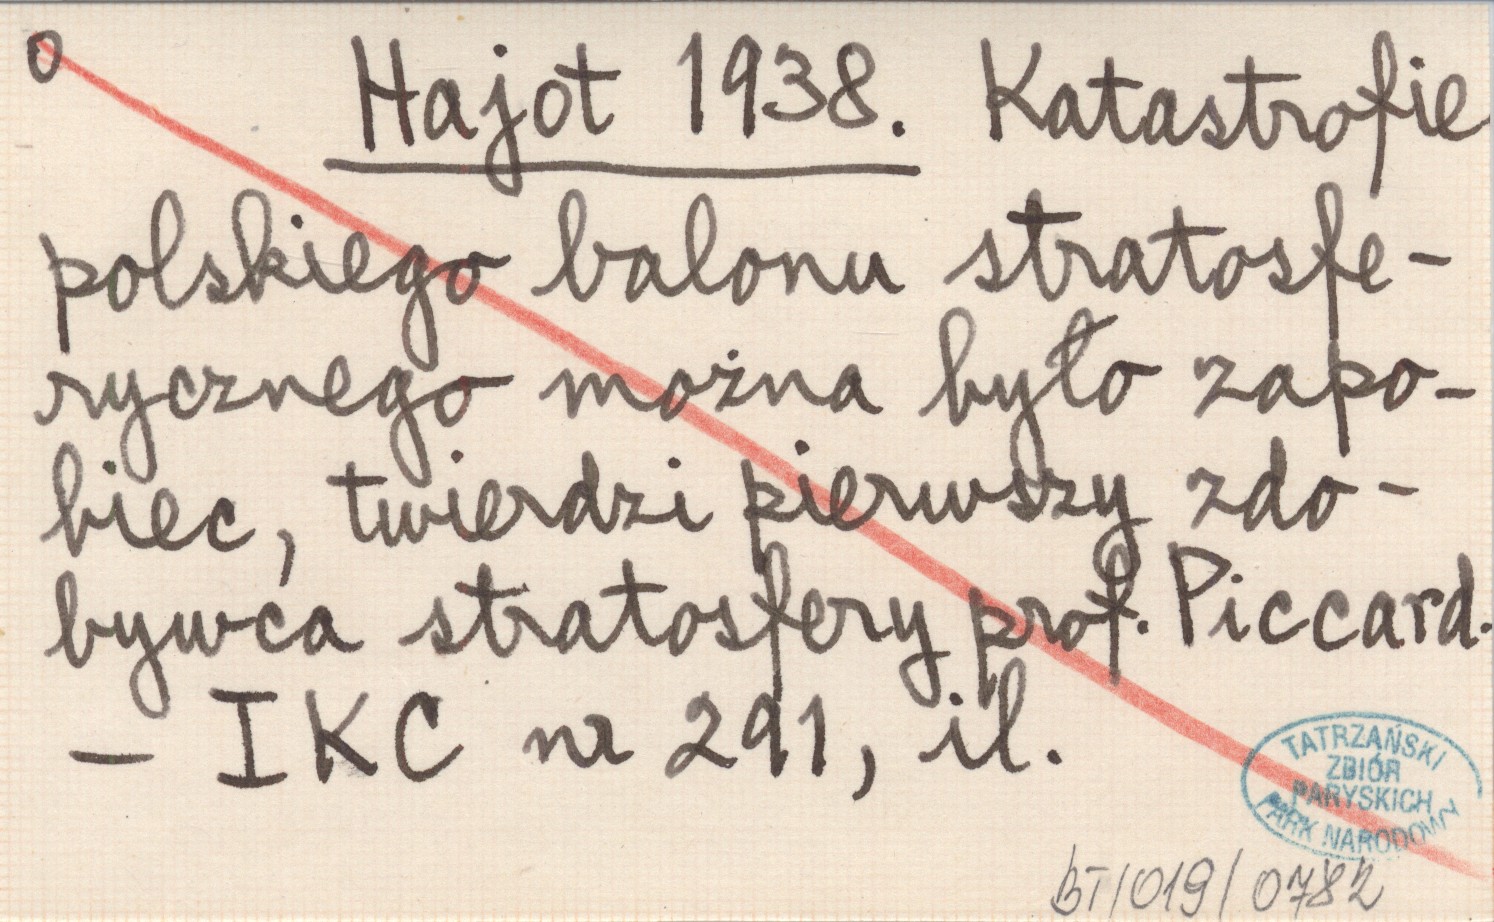 o Hajot 1938. Katastrofie
polskiego balonu stratosfe-
rycznego można było zapo-
biec, twierdzi pierwszy zdo-
bywca stratosfery prof. Piccard.
– IKC nr 291, il.
TATRZAŃSKI
ZBIÓR
PARYSKICH
PARK NARODOWY
BT/019/0782